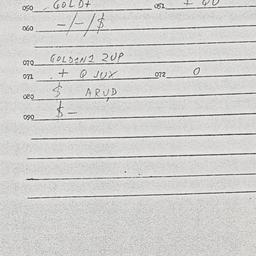 050 GOLD+ 051 I QU
060 -/-/$
070 GOLDEN1 2UP
071 . + Q JUX 072 0
080 $ ARUD
090 $-